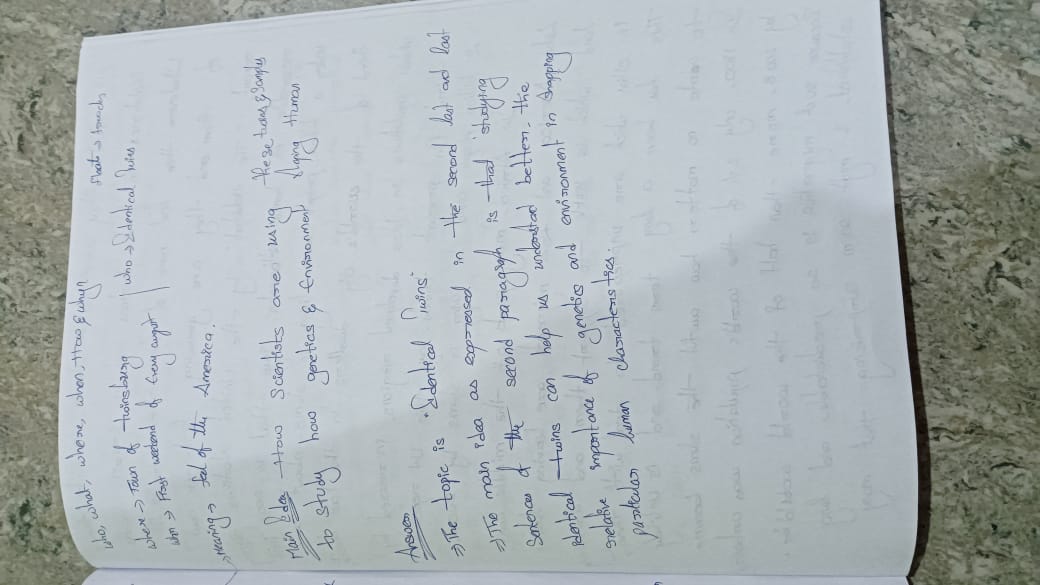 who, what, where, when, How & why
float → towards
where → Town of twinsburg
who → Identical twins.
whn → First weekend of every august
→ Meaning → feel of the America.
Main Idea How Scientists are using these twins & samples
to study how genetics & Environment Human
Answer
→ The topic is "Identical Twins"
→ The main idea as expressed in the second last and last
Sentences of the second paragraph is that studying
identical twins can help us understand better, the
relative importance of genetics and environment in shapping
particular human characteristics.